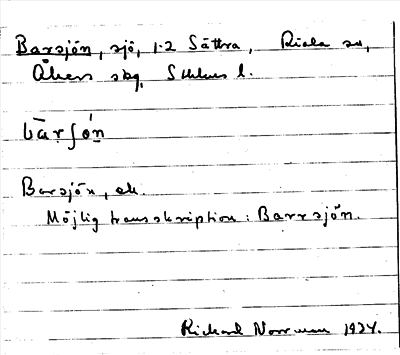 Barsjön, sjö, 1·2 Sättra, Riala sn,
Åkers skg, Sthlms l.
bārʃön
Barsjön, ek.
Möjlig transskription: Barrsjön.
Rickard Norrman 1934.